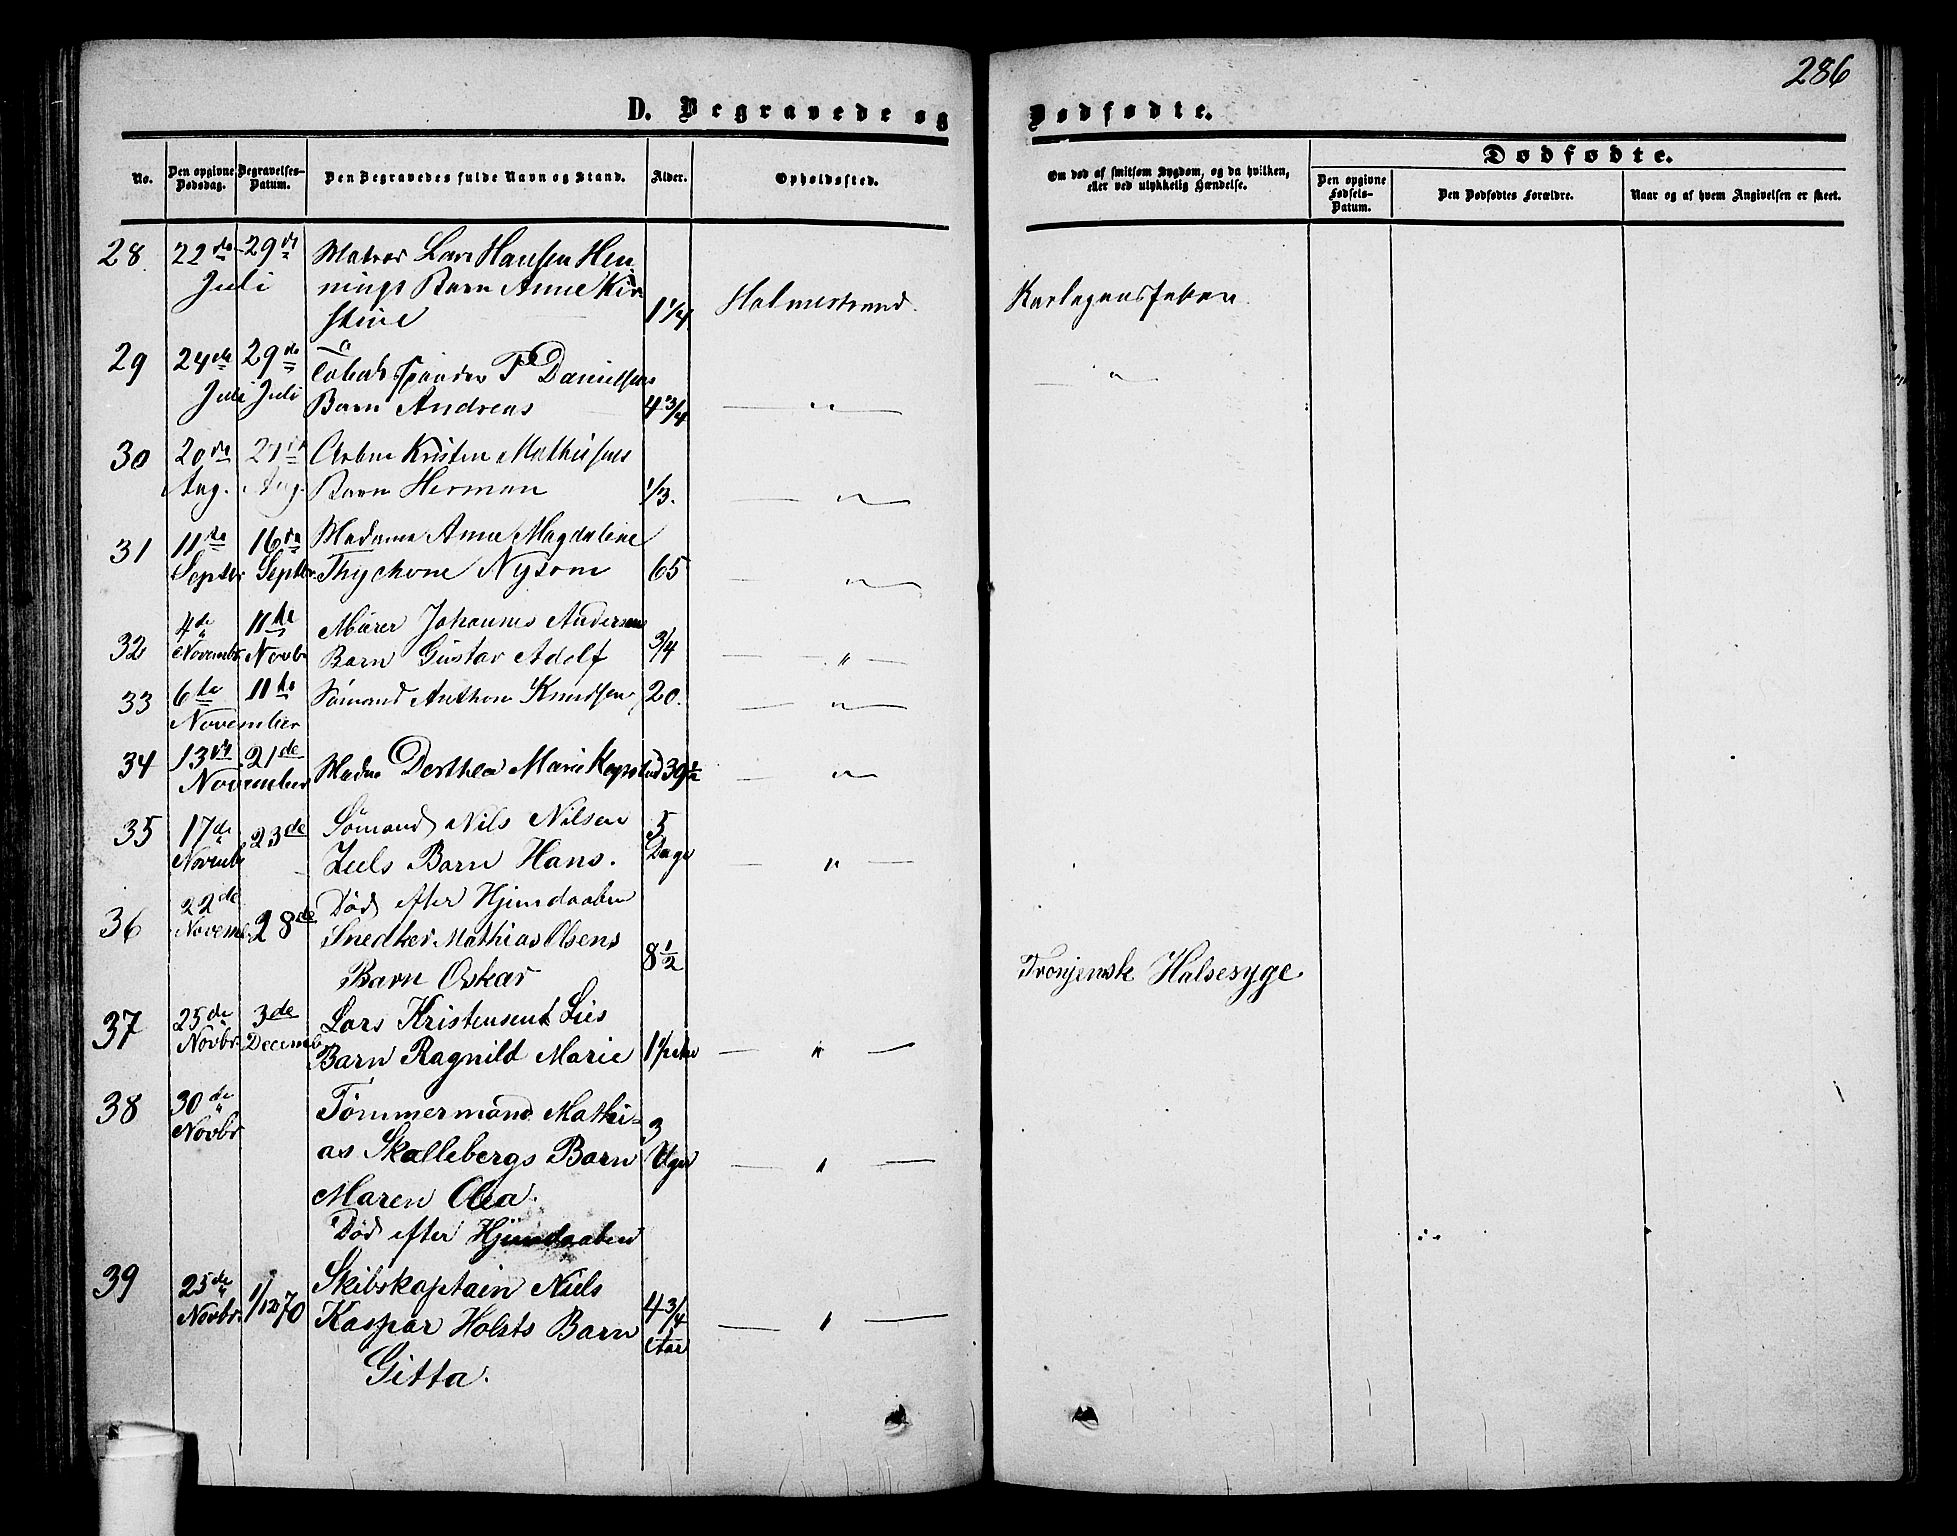 286
D. Begravede og Dødfødte.
No. Den opgivne Dødsdag. Begravelses-Datum. Den Begravedes fulde Navn og Stand. Alder. Opholdssted.
Om død af smitsom Sygdom, og da hvilken, eller ved ulykkelig Hændelse.
Dødfødte.
Den opgivne Fødsels-Datum. Den Dødfødtes Forældre. Naar og af hvem Angivelsen er skeet.
28. 22de 29de Matros Lars Hansen Hen
Juli nings Barn Anne Kir
stine 1 1/4 Holmestrand.
29 24de 29de F Danielsens
Juli Juli Barn Andreas 4 3/4 — " —
— " —
30 20de Kristen Mathisens
Aug. Aug. Barn Herman 1/3. — " —
31 11te 16de Madame Anne Magdaline
Septbr Septbr. Nysom 65 — " —
32 4de 11te Murer Johannes Andersens
Novembr Novb Barn Gustav Adolf 3/4 — " —
33 6te 11te Sømand Anthon Knudsen 20. — " —
November
34 13de 21de Madm Dorthea Marie 39 1/2 — " —
November
35 17de 23de Sømand Nils Nilsen 5
Novemb Juels Barn Hans. Dage — " —
Død efter Hjemdaaben
36 22de 28de Snedker Mathias Olsens
Novemb. Barn Oskar 8 1/2
Halsesyge.
37 25de 3de Lars Lies
Novbr. Decemb Barn Ragnild Marie 1 — " —
38 30de Tømmermand Mathi-
Novbr as Skallebergs Barn 3 Uger — " —
Maren Olea.
Død efter Hjemdaaben
39 25de 1/12 70 Skibskaptain Niels
Novbr. Kaspar Holsts Barn 4 3/4 Aar — " —
Gitta.